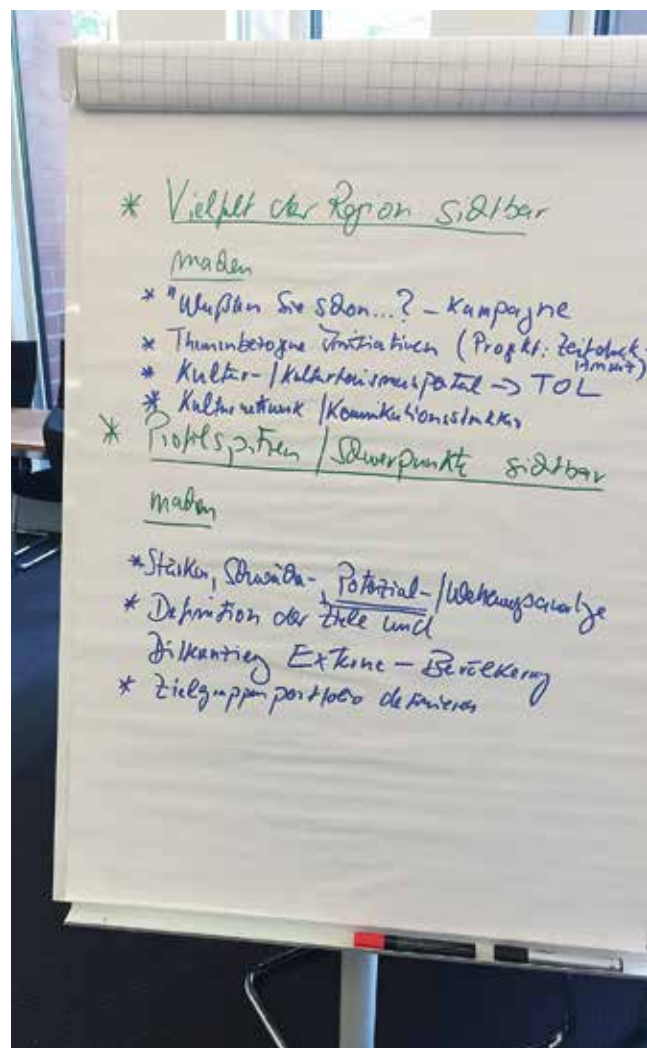 * Vielfalt der Region sichtbar
machen
* "Wußten Sie schon...? – Kampagne
* Themenbezogene Initiativen (Projekt:
* Kultur- / Kulturtourismusportal -> TOL
* Kulturnetzwerk / Kommunikationsstruktur
* Profilspitzen / Schwerpunkte sichtbar
machen
* Stärken, Schwächen-, Potenzial- /
* Definition der Ziele und
Externe – Bevölkerung
* Zielgruppenportfolio definieren